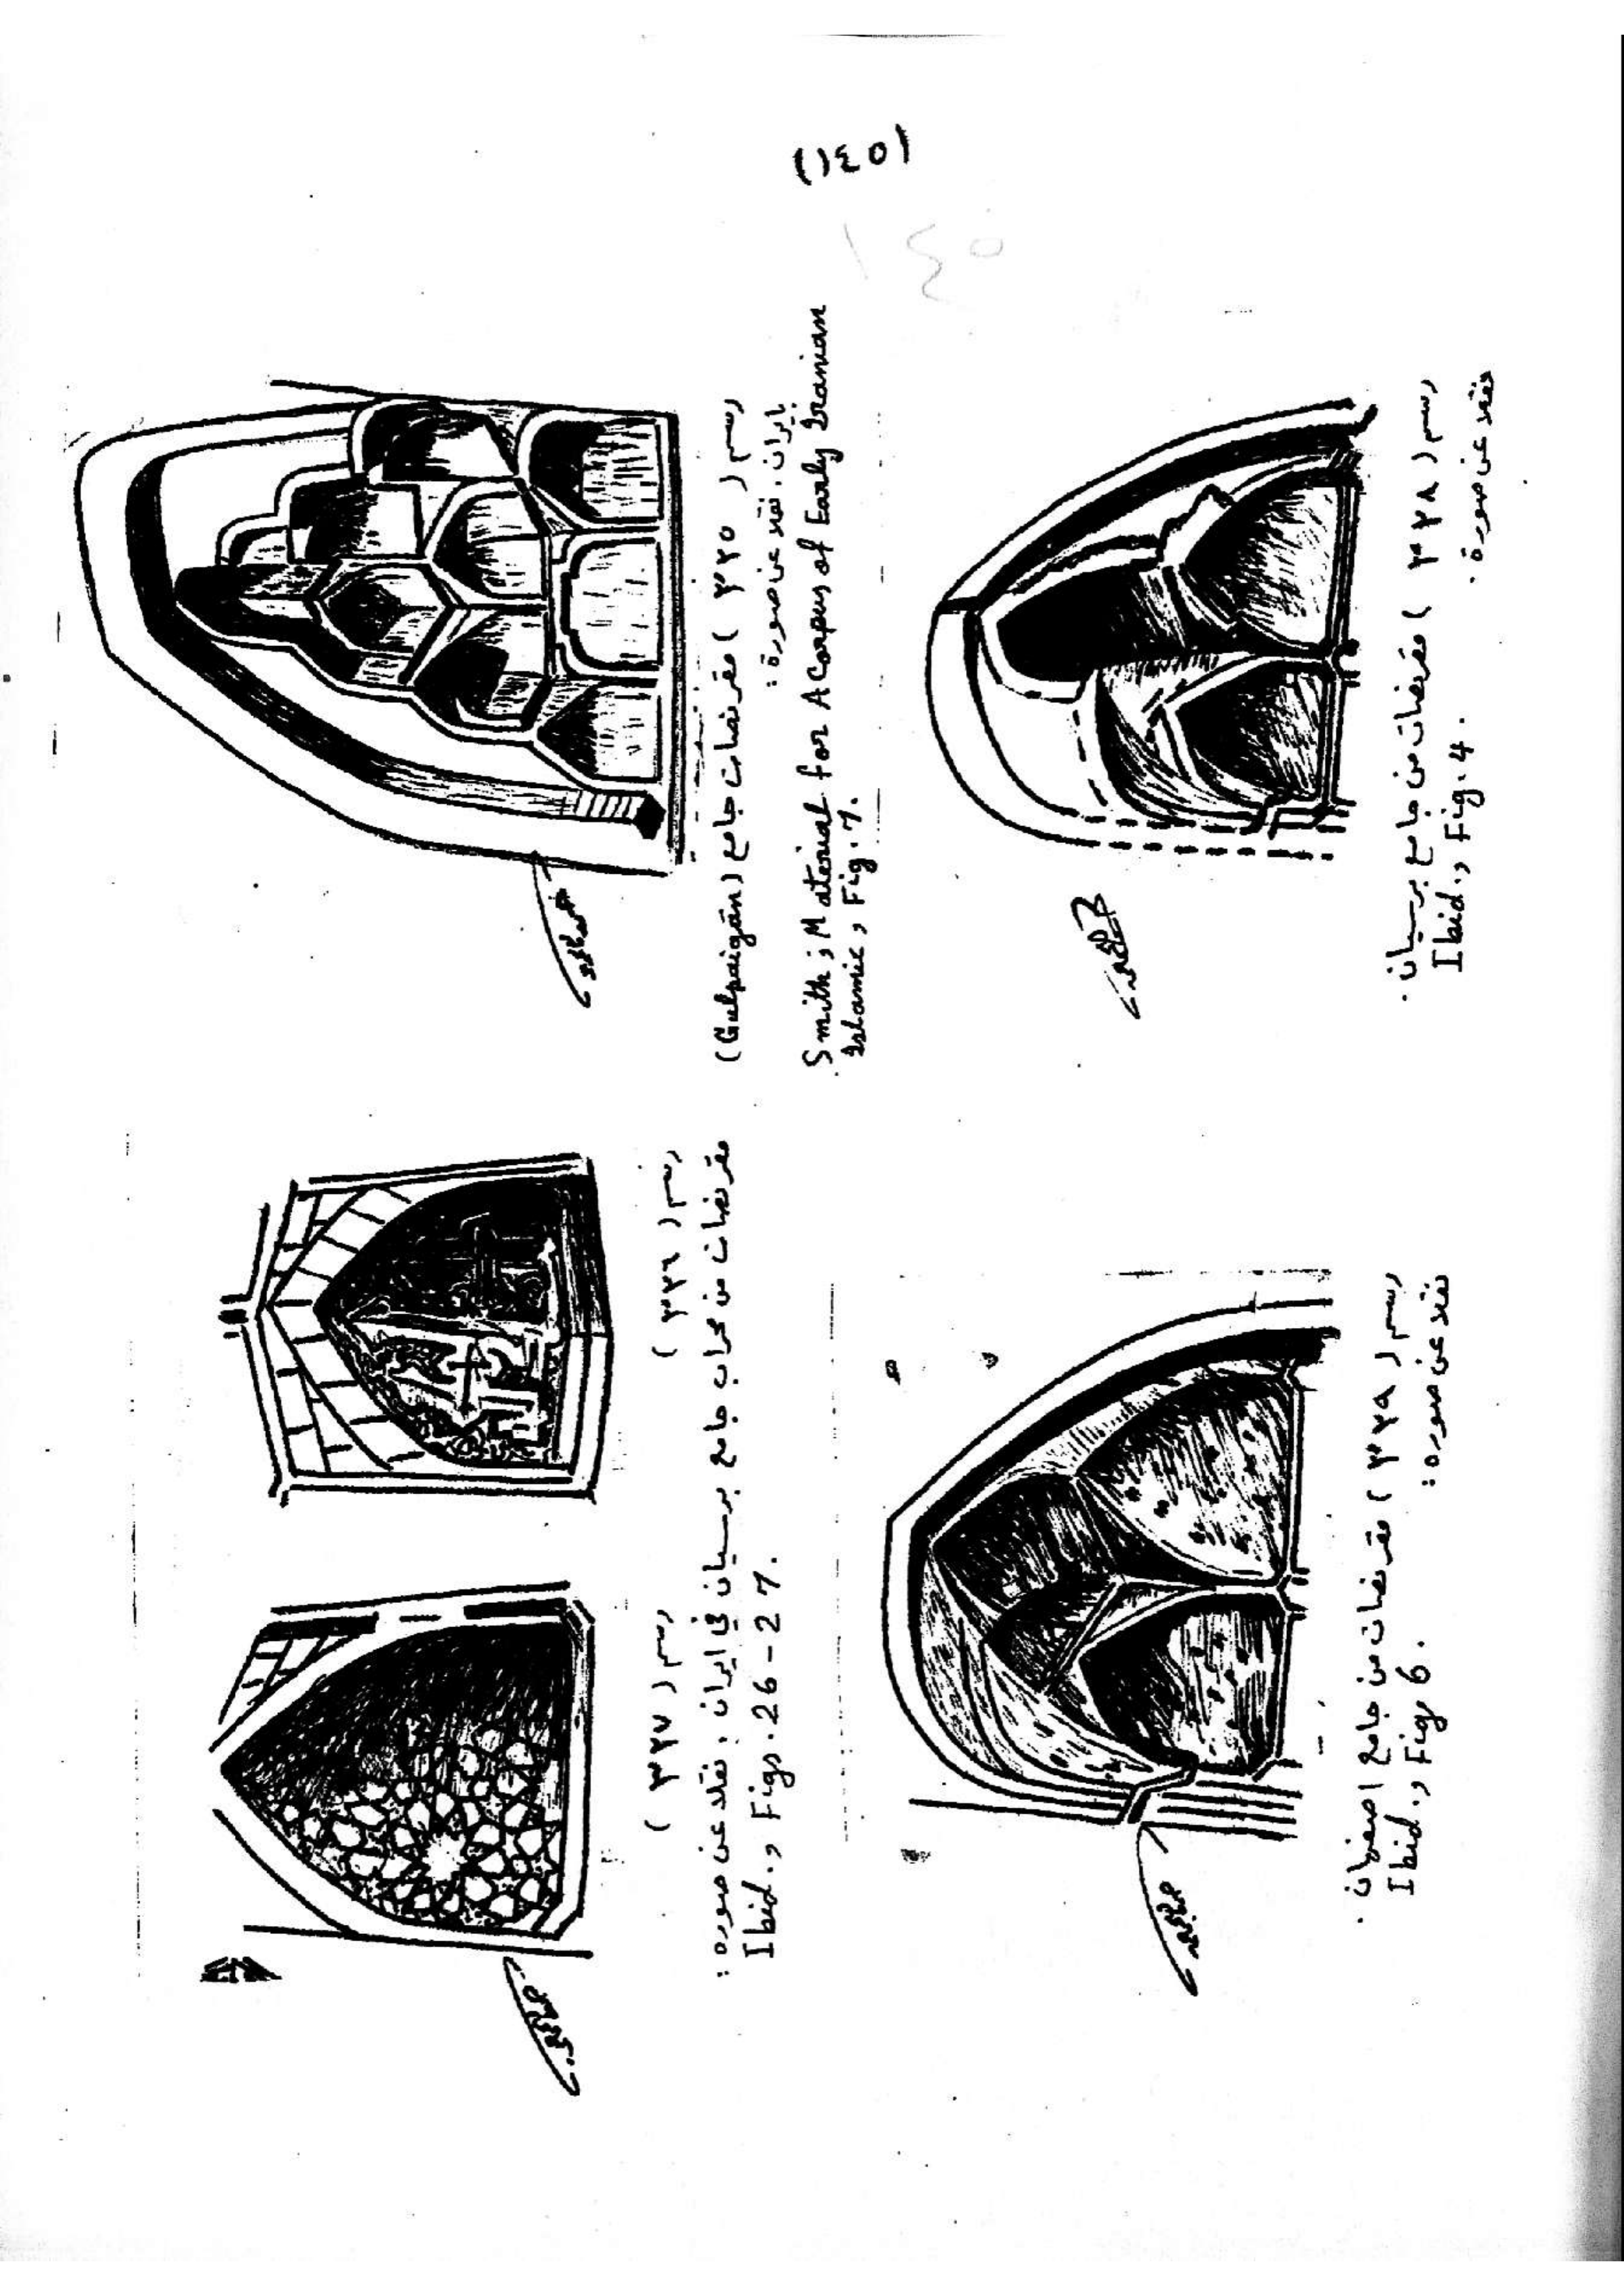 (١٤٥)
١٤٥
رسم ( ٣٢٥ ) مقرنصات جامع (Gulpaigān)
بايران . نقلا عن صورة :
Smith ; Material for A Corpus of Early Iranian
Islamic , Fig. 7.
رسم ( ٣٢٦ )
رسم ( ٣٢٧ )
مقرنصات من محراب جامع برسيان في ايران ، نقلا عن صوره :
Ibid. , Figs. 26 - 27.
رسم ( ٣٢٨ ) مقرنصات من جامع برسيان .
نقلا عن صورة .
Ibid., Fig. 4 .
رسم ( ٣٢٩ ) مقرنصات من جامع اصفهان .
نقلا عن صوره :
Ibid., Fig 6 .